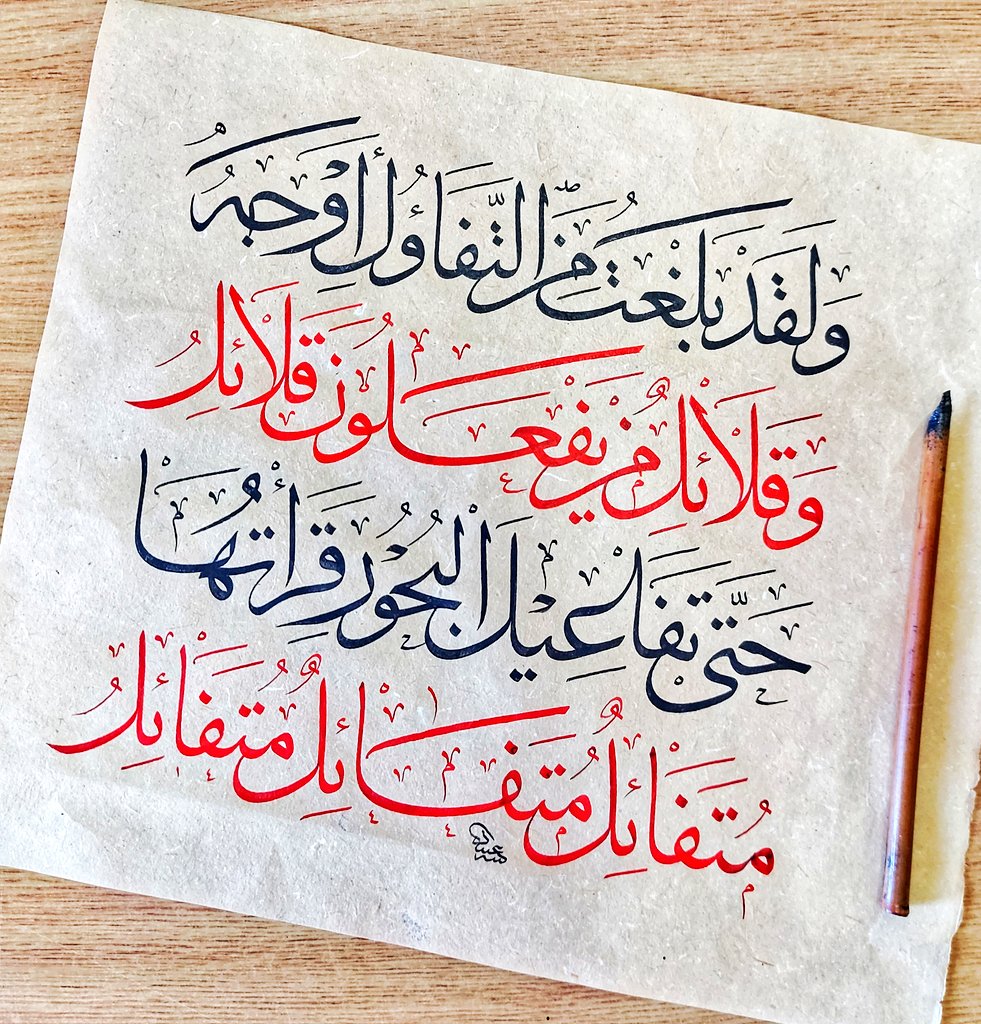 وَلَقَدْ بَلَغْتُ مِنَ التَّفَاؤُلِ أَوْجَهُ
وَقَلَائِلٌ مَنْ يَفْعَلُونَ قَلَائِلُ
حَتَّى تَفَاعِيلَ الْبُحُورِ قَرَأْتُهَا
مُتَفَائِلٌ مُتَفَائِلٌ مُتَفَائِلُ